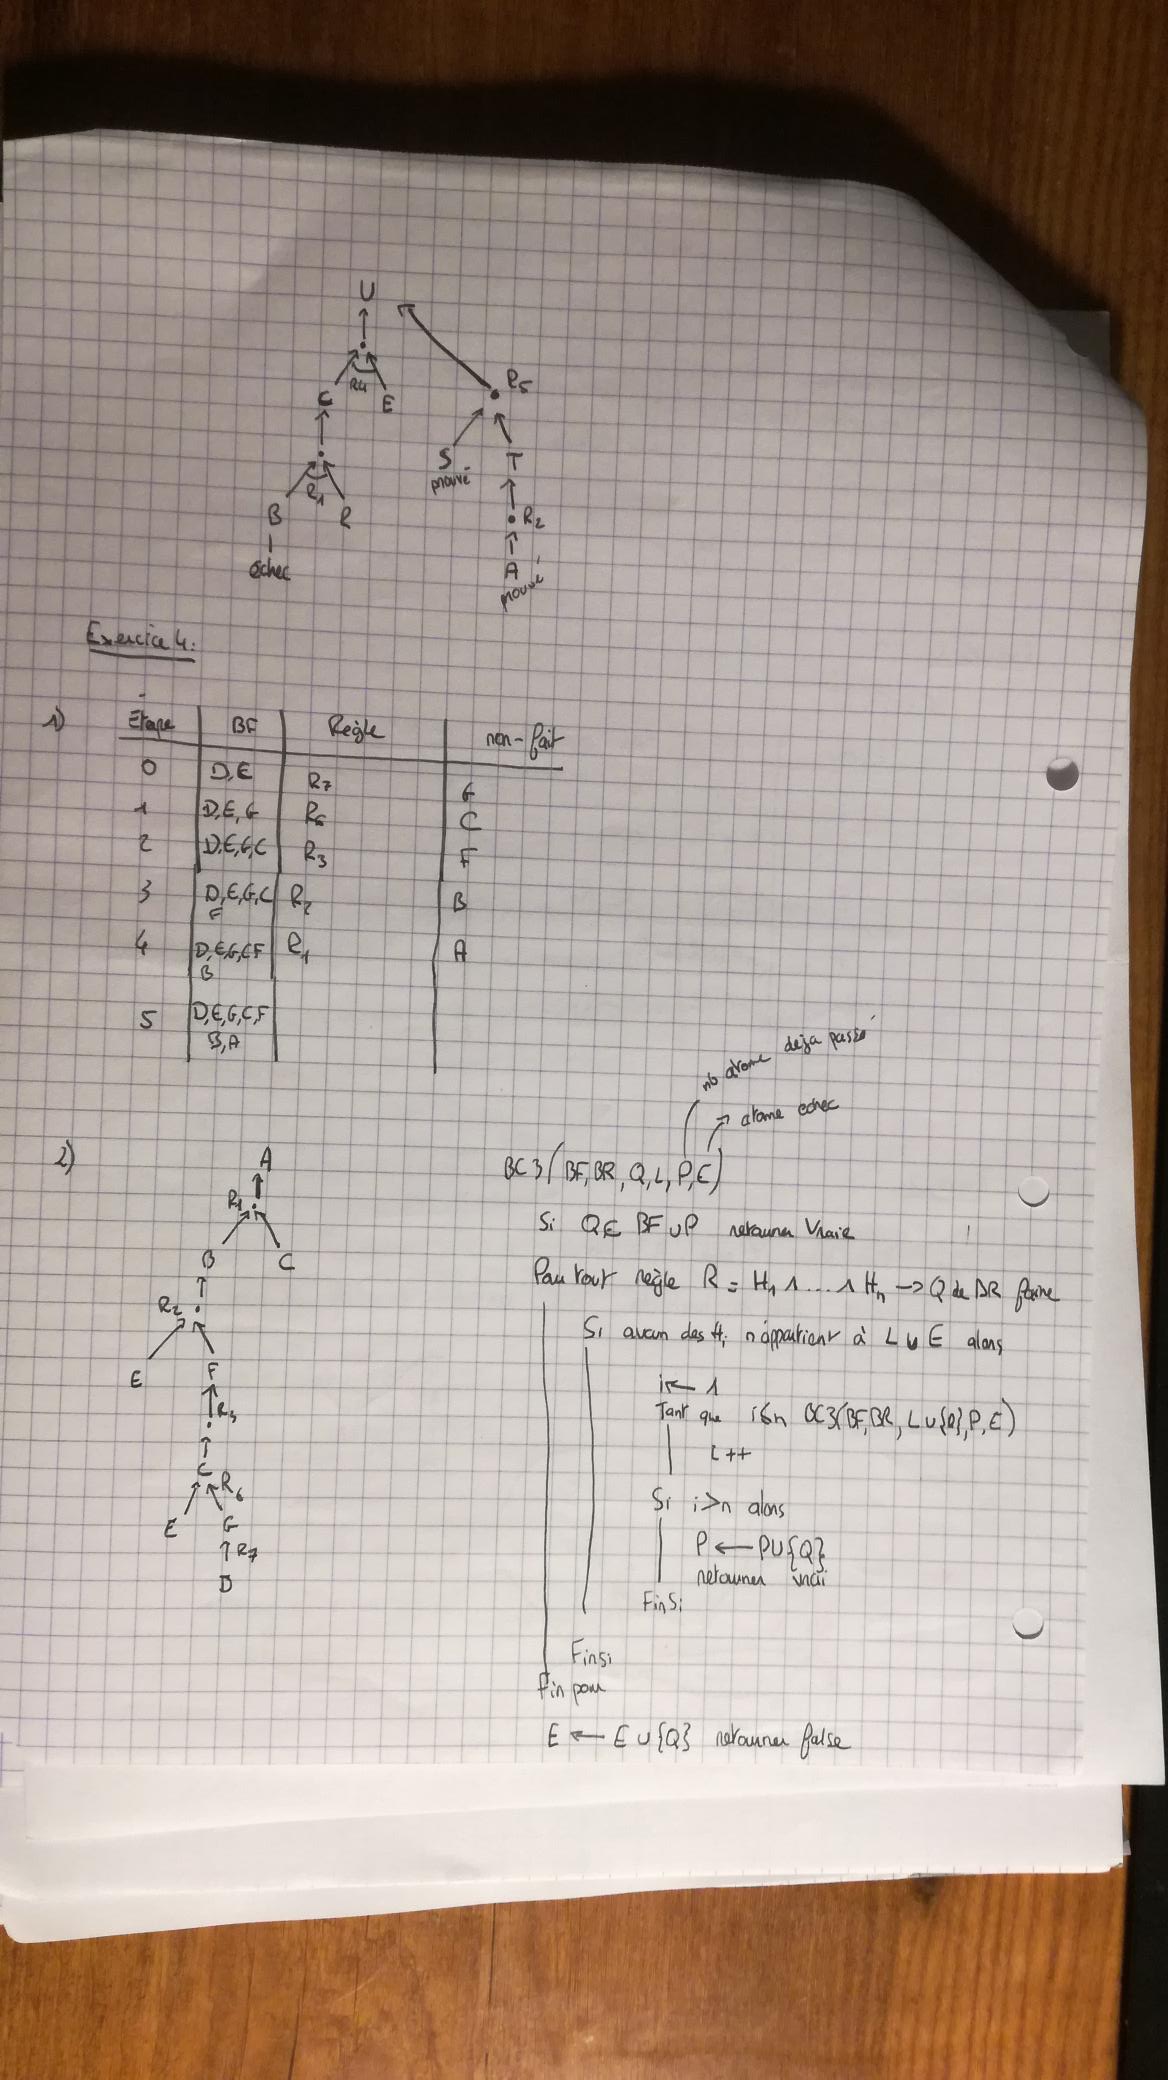 U
R4
R5
C E
S T
prouvé
R1
B R
R2
échec
A
prouvé
Exercice 4:
1)
Etape BF Règle non-fait
0 D,E R7 G
1 D,E,G R6 C
2 D,E,G,C R3 F
3 D,E,G,C F R2 B
4 D,E,G,C,F B R1 A
5 D,E,G,C,F B,A
nb atome deja passé
atome echec
2)
A
R1
B C
R2
E F
R3
C
R6
E G
R7
D
BC3(BF,BR,Q,L,P,E)
Si Q∈ BF∪P retourner Vraie
Pour tout règle R = H1 ∧...∧ Hn → Q de BR faire
Si aucun des Hi n'appartient à L∪E alors
i ← 1
Tant que i≤n BC3(BF,BR, L∪{Q},P,E)
i++
Si i>n alors
P ← P∪{Q}
retourner vrai
FinSi
Finsi
Fin pour
E ← E∪{Q} retourner false